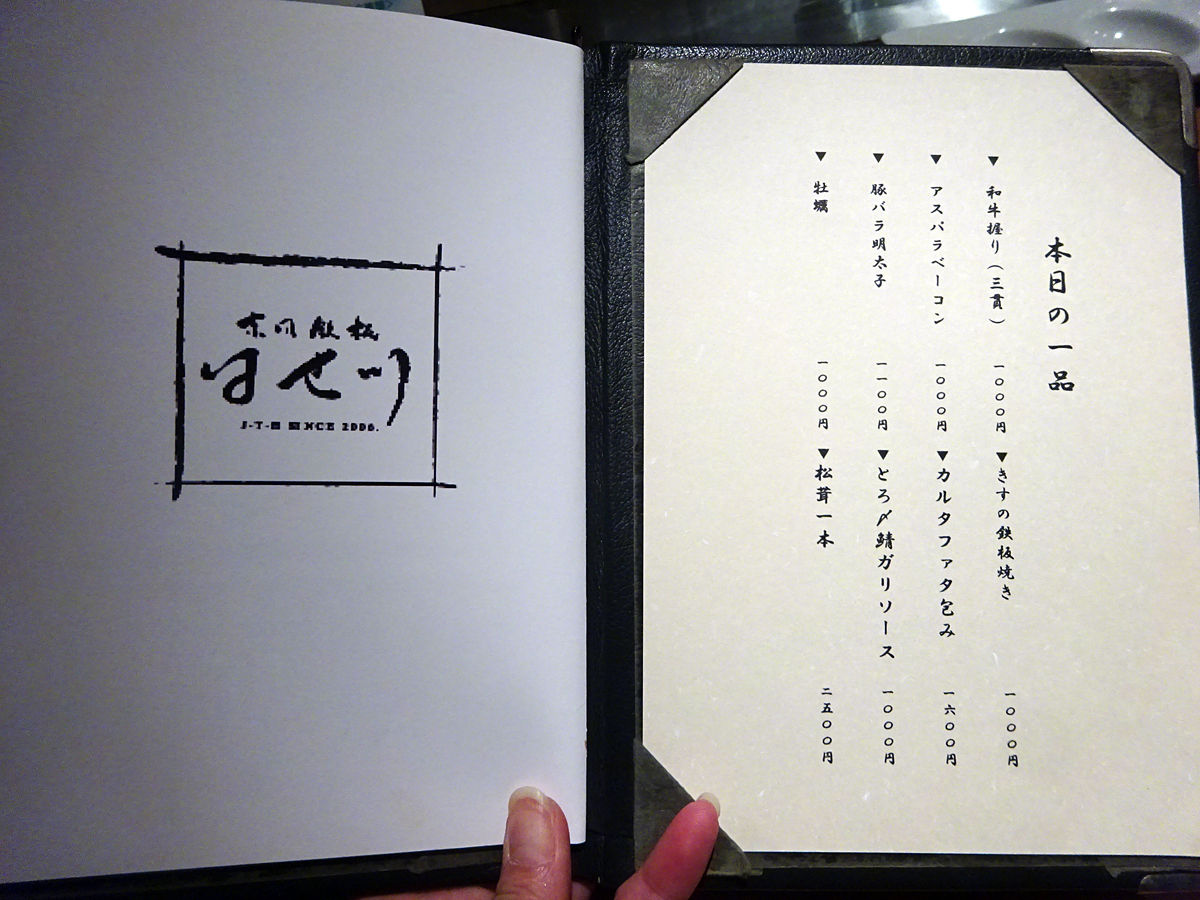 本日の一品
▼和牛握り(三貫) 一〇〇〇円
▼アスパラベーコン 一〇〇〇円
▼豚バラ明太子 一一〇〇円
▼牡蠣 一〇〇〇円
▼きすの鉄板焼き 一〇〇〇円
▼カルタファタ包み 一六〇〇円
▼とろ〆鯖ガリソース 一〇〇〇円
▼松茸一本 二五〇〇円
はせ川
SINCE 2006.